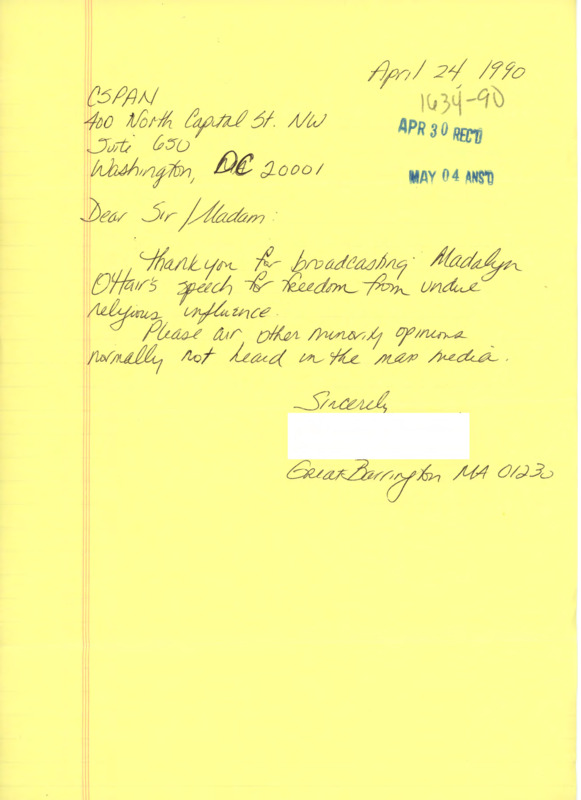 April 24, 1990
1634-90
APR 30 REC'D
MAY 04 ANS'D
CSPAN
400 North Capital St. NW
Suite 650
Washington, DC 20001
Dear Sir/Madam:
Thank you for broadcasting Madalyn
O'Hair's speech for freedom from undue
religious influence.
Please air other minority opinions
normally not heard in the mass media.
Sincerely
Great Barrington MA 01230